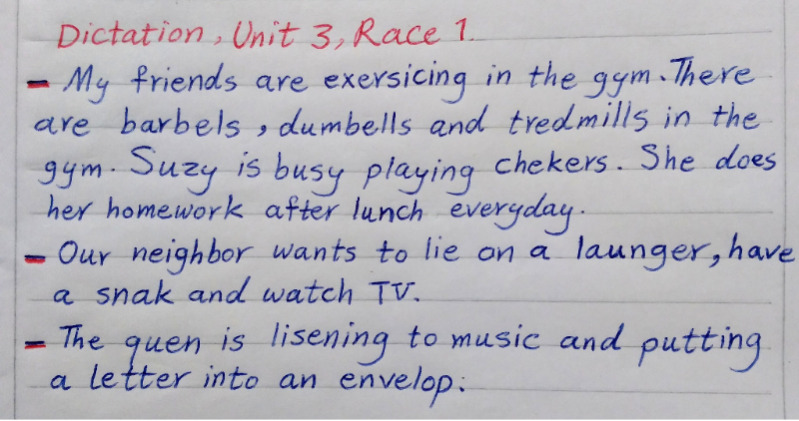 Dictation, Unit 3, Race 1.
- My friends are exersicing in the gym. There
are barbels, dumbells and tredmills in the
gym. Suzy is busy playing chekers. She does
her homework after lunch everyday.
- Our neighbor wants to lie on a launger, have
a snak and watch TV.
- The quen is lisening to music and putting
a letter into an envelop.